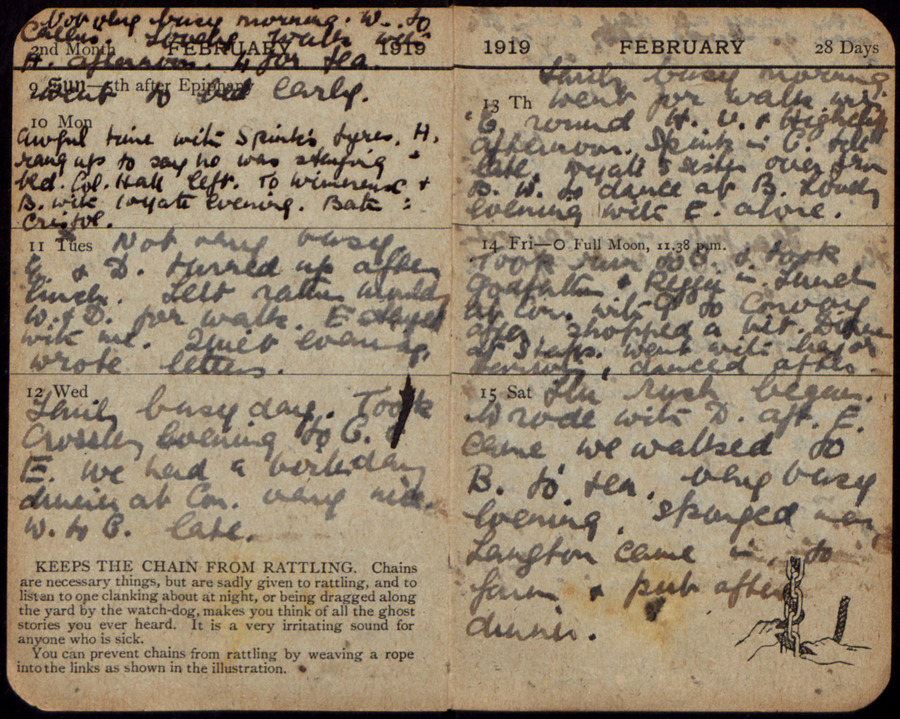 Not very busy morning. W. to
Calais. Lovely walk with
2nd Month FEBRUARY 1919
H. afternoon. 4 for tea.
9 Sun—5th after Epiphany
went to bed early.
10 Mon
Awful time with Spink's tyres. H.
rang up to say he was staying
bed. Col. Hall left. To Wimereux +
B. with evening. Bath
11 Tues Not very busy
E. & D. turned up after
lunch. Felt rather
W. & D. for walk. E stayed
with me. Quiet evening,
wrote letters.
12 Wed
Fairly busy day. Took
Crossley evening to C.
E. We had a birthday
dinner at Con. very nice.
W. to C. late.
KEEPS THE CHAIN FROM RATTLING. Chains
are necessary things, but are sadly given to rattling, and to
listen to one clanking about at night, or being dragged along
the yard by the watch-dog, makes you think of all the ghost
stories you ever heard. It is a very irritating sound for
anyone who is sick.
You can prevent chains from rattling by weaving a rope
into the links as shown in the illustration.
1919 FEBRUARY 28 Days
Fairly busy morning
13 Th went for walk with
E. round H. V. &
afternoon. Spink in C. till
late. sister over from
B. W. to dance at B. Lovely
evening with E. alone.
14 Fri—O Full Moon, 11.38 p.m.
Took to B. & took
Godfather & Reggie in. Lunch
at Con. with to Convoy
after, shopped a bit. Dinner
at Staps. went with
, danced after.
15 Sat Flu rush began.
W rode with D. aft. E.
came we walked to
B. to tea. very busy
evening, sponged men
Langton came in, to
farm & pub after
dinner.